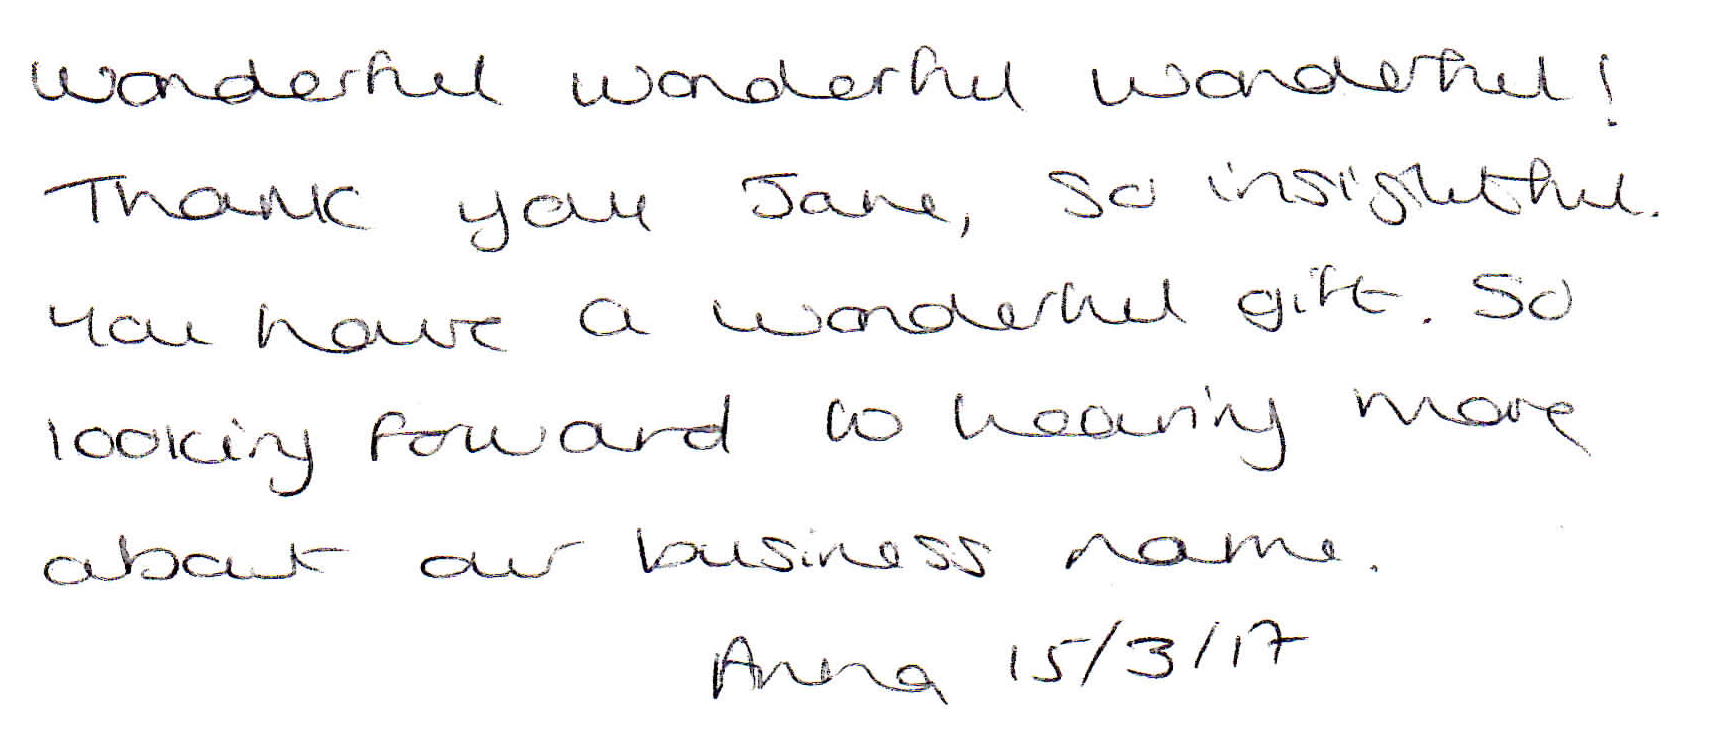 Wonderful wonderful wonderful!
Thank you Jane, so insightful.
You have a wonderful gift. So
looking forward to hearing more
about our business name.
Anna 15/3/17